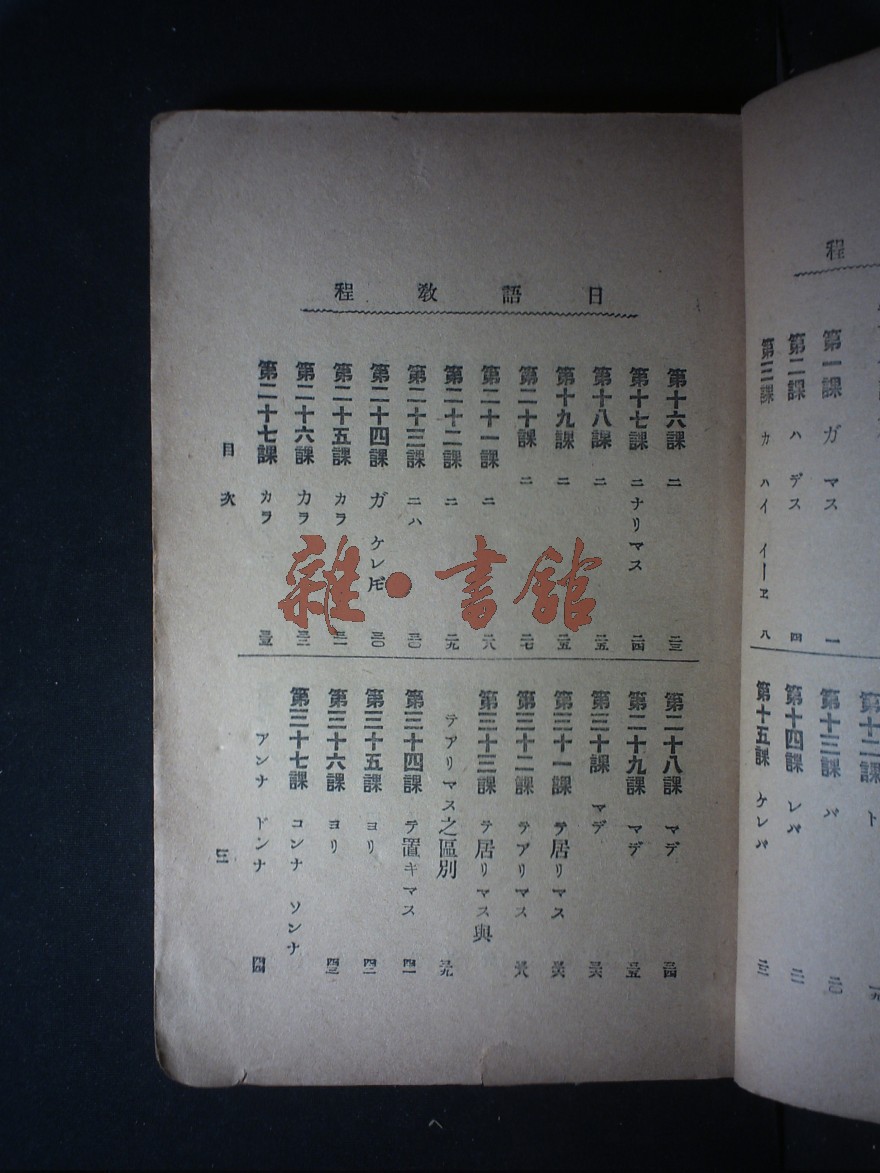 程
第一課 ガ マス 一
第二課 ハ デス 四
第三課 カ ハイ イーヱ 八
第十二課 ト 一九
第十三課 バ 二〇
第十四課 レバ
第十五課 ケレバ
日語教程
第十六課 ニ 二三
第十七課 ニナリマス 二四
第十八課 ニ 二五
第十九課 ニ 二五
第二十課 ニ 二七
第二十一課 ニ 二八
第二十二課 ニ 二九
第二十三課 ニハ 三〇
第二十四課 ガ ケレ𪜈 三〇
第二十五課 カラ
第二十六課 カラ
第二十七課 カラ
第二十八課 マデ 三四
第二十九課 マデ 三五
第三十課 マデ 三六
第三十一課 テ居リマス 三六
第三十二課 テアリマス 三八
第三十三課 テ居リマス與
テアリマス之區別 三九
第三十四課 テ置キマス 四一
第三十五課 ヨリ 四二
第三十六課 ヨリ 四三
第三十七課 コンナ ソンナ
アンナ ドンナ 四四
目次
三
雜·書館